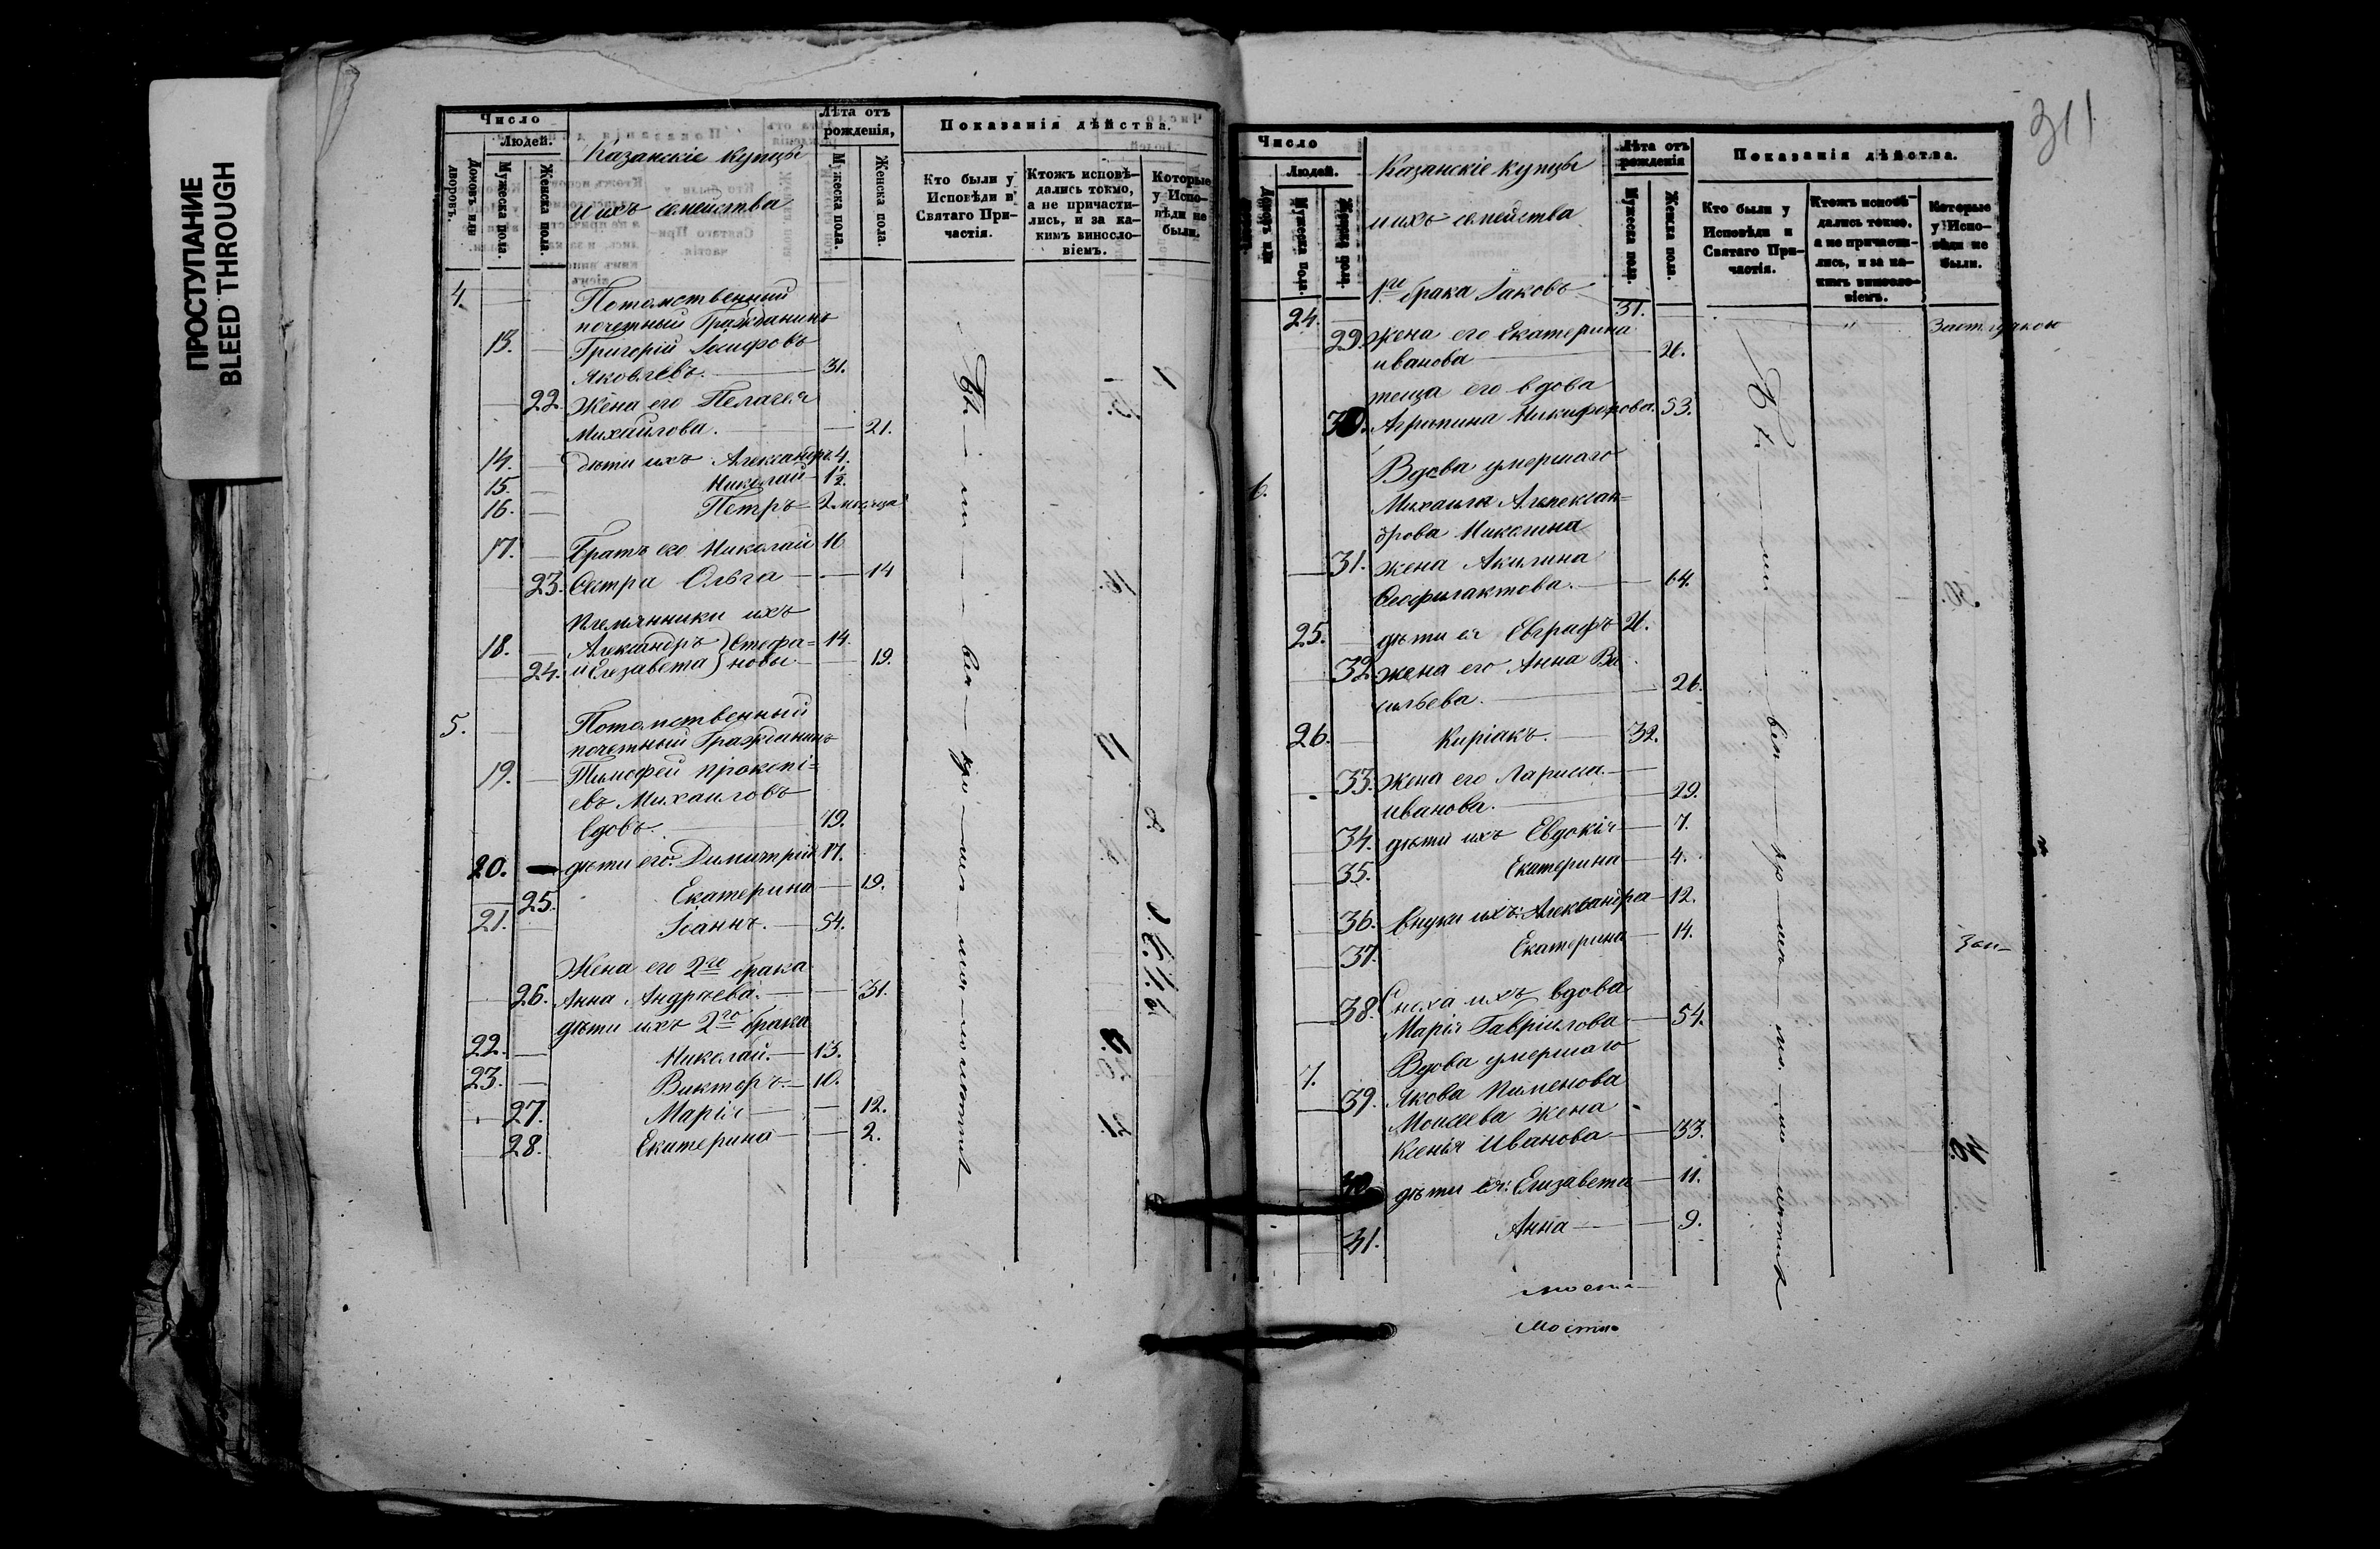 ПРОСТУПАНИЕ
BLEED THROUGH
Число
Людей.
Домовъ или дворовъ.
Мужеска пола.
Женска пола.
Казанскіе купцы
и ихъ семейства
Лѣта отъ рожденія,
Мужеска пола.
Женска пола.
Показанія дѣйства.
Кто были у Исповѣди и Святаго Причастія.
Ктожъ исповѣдались токмо, а не причастились, и за какимъ винословіемъ.
Которые у Исповѣди не были.
4. Потомственный
почетный Гражданинъ
13. Григорій Іосифовъ
Яковлевъ. 31.
22. Жена его Пелагея
Михайлова. 21.
14. дѣти ихъ Александръ 4.
15. Николай 1½.
16. Петръ 2 месяца
17. Братъ его Николай 16
23. Сестра Ольга 14
племянники ихъ
18. Александръ (Стефа= 14.
24. и Елезавета) новы 19.
5. Потомственный
почетный Гражданинъ
19. Тимофей Прокопі=
евъ Михаиловъ
вдовъ. 79.
20. дѣти его: Димитрій 17.
25. Екатерина 19.
21. Іоаннъ. 54.
Жена его 2го брака
26. Анна Андреева. 31.
дѣти ихъ 2го брака
22. Николай. 13.
23. Викторъ. 10.
27. Марія 12.
28. Екатерина 2.
311
Число
Людей.
Мужеска пола.
Женска пола.
Казанскіе купцы
и ихъ семейства
Лѣта отъ рожденія
Мужеска пола.
Женска пола.
Показанія дѣйства.
Кто были у Исповѣди и Святаго Причастія.
Ктожъ исповѣдались токмо, а не причастились, и за какимъ винословіемъ.
Которые у Исповѣди не были.
24. 1го брака Іаковъ 31.
29. жена его Екатерина
иванова 26.
теща его вдова
30. Агрипина Никифорова. 53.
6. Вдова умершаго
Михаила Алексан=
дрова Николина
31. жена Акилина
Феофилактова. 64.
25. дѣти ея Евграфъ 26.
32. жена его Анна Ва
сильева. 26.
26. Киріакъ. 32.
33. жена его Лариса
иванова. 29.
34. дѣти ихъ Евдокія 7.
35. Екатерина 4.
36. внуки ихъ: Александра 12.
37. Екатерина 14.
38. Сноха ихъ вдова
Марія Гавріилова 54.
7. Вдова умершаго
39. Якова Пименова
Моисеева жена
Ксенія Иванова 33.
40. дѣти ея: Елизавета 11.
41. Анна 9.